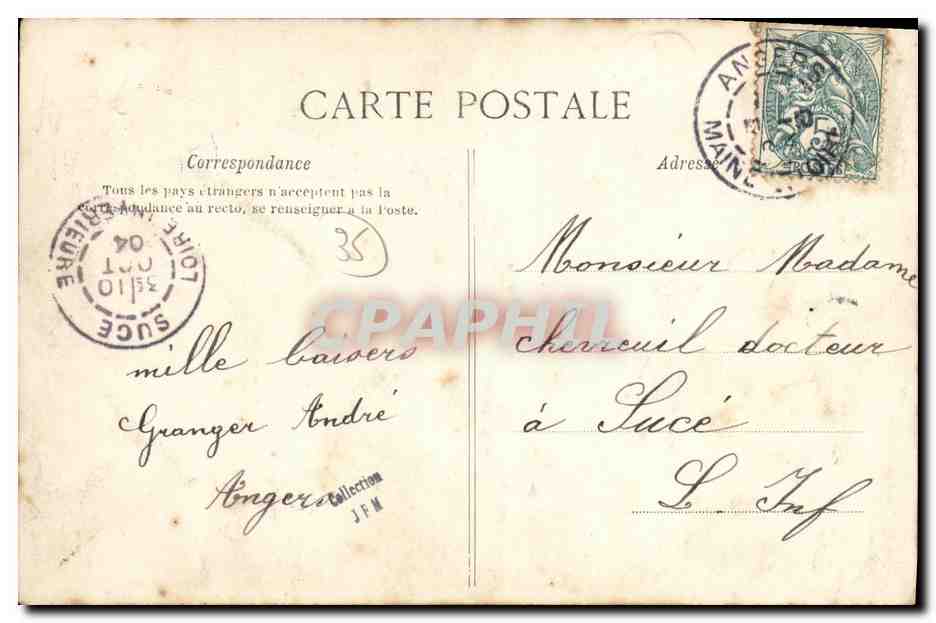 CARTE POSTALE
Correspondance
Adresse
Tous les pays étrangers n'acceptent pas la
correspondance au recto, se renseigner à la Poste.
35
ANGERS
MAINE
LOIRE INFERIEURE
3E 10
OCT
04
SUCE
CPAPHIL
Monsieur Madame
cherreuil docteur
à Sucé
L. Inf
mille baisers
Granger André
Angers
Collection
J F M